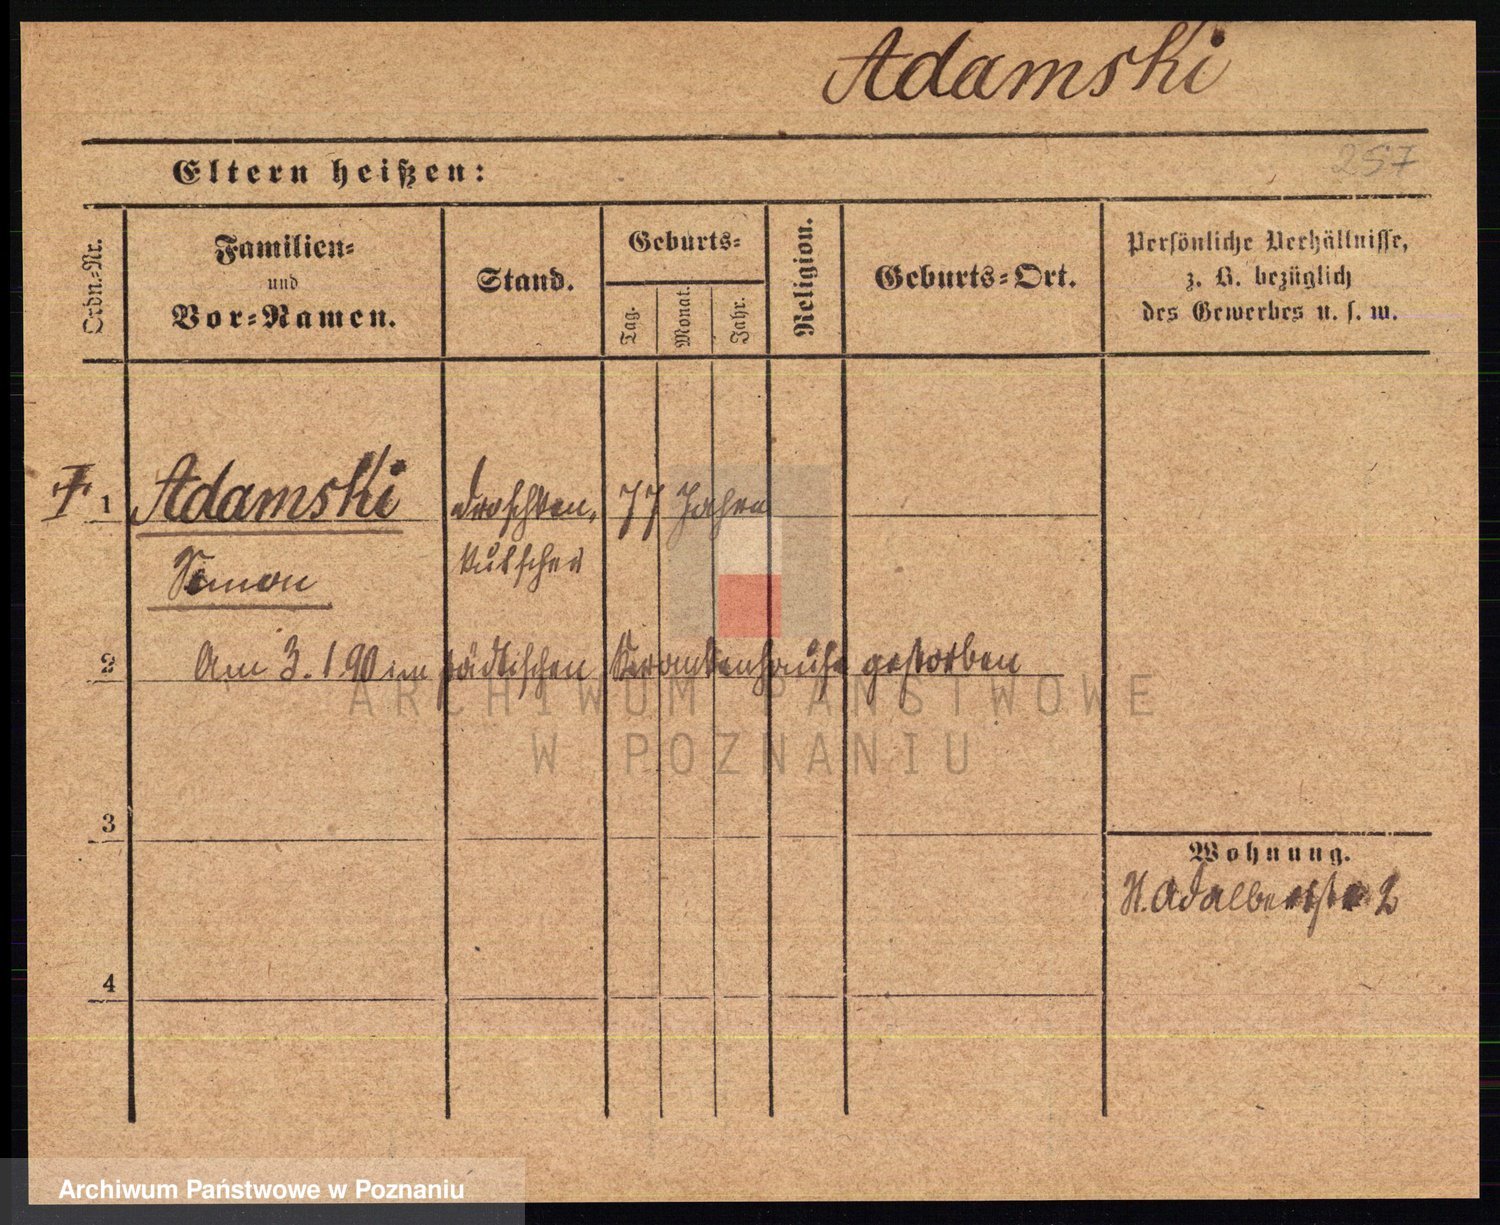 Adamski
257
Eltern heißen:
Ordn.=Nr.
Familien=
und
Vor=Namen.
Stand.
Geburts=
Tag.
Monat.
Jahr.
Religion.
Geburts=Ort.
Persönliche Verhältnisse,
z. B. bezüglich
des Gewerbes u. s. w.
1 Adamski Droschken, 77 Jahre
Simon kutscher
2 Am 3. 1 90 im städtischen Krankenhause gestorben
3
Wohnung.
Adalbertstr 2
4
ARCHIWUM PAŃSTWOWE
W POZNANIU
Archiwum Państwowe w Poznaniu